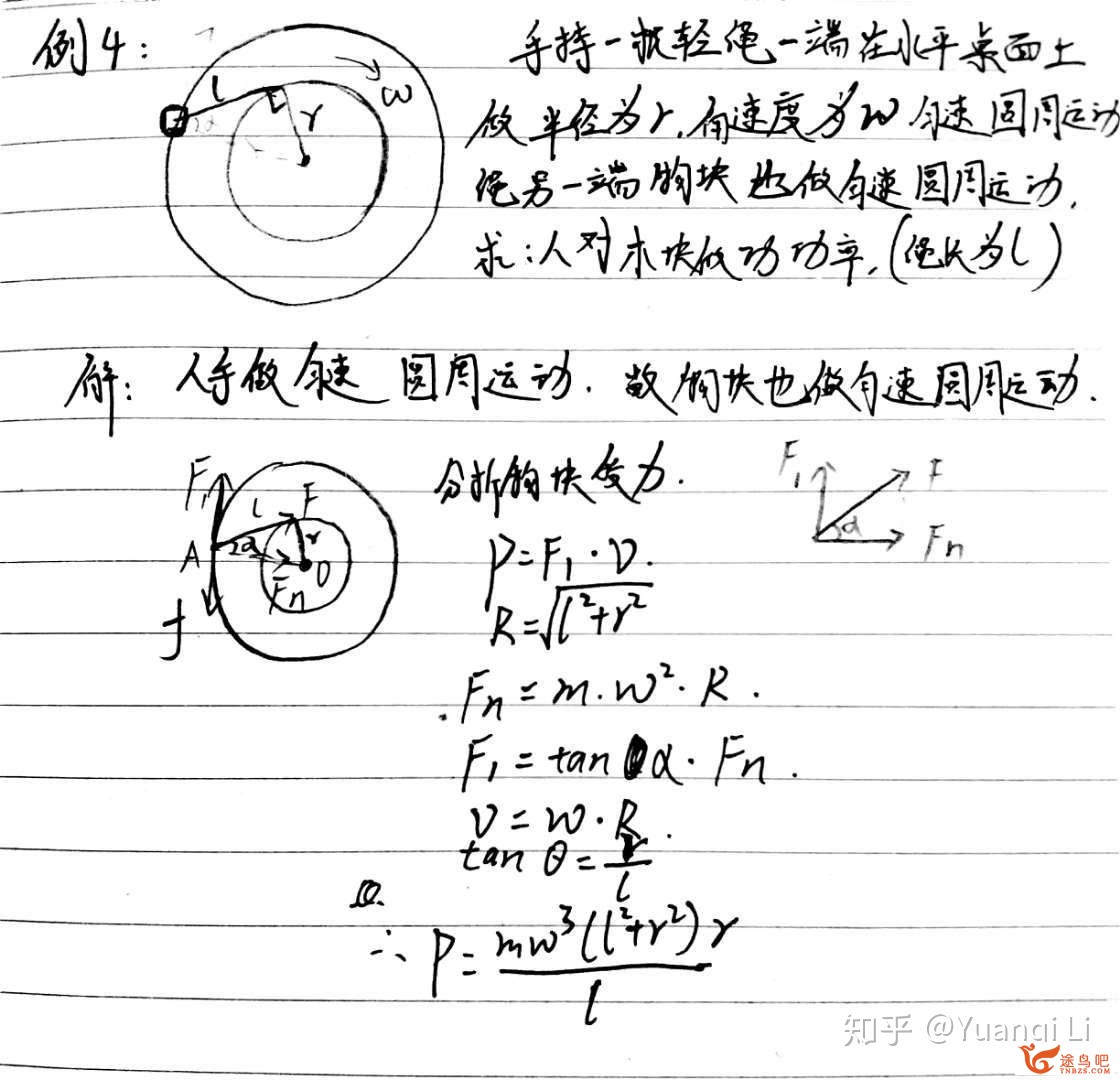 例4:
l
r
ω
α
手持一根轻绳一端在水平桌面上
做半径为r,角速度为ω匀速圆周运动
绳另一端物块也做匀速圆周运动.
求:人对木块做功功率.(绳长为l)
解: 人手做匀速圆周运动. 故物块也做匀速圆周运动.
分析物块受力.
F₁
l
F
A
α
r
O
Fn
f
F₁
F
α
Fn
P=F₁·v.
R=√(l²+r²)
Fn=m.ω²·R.
F₁=tanα·Fn.
v=ω·R.
tanθ=r/l
∴P=mω³(l²+r²)r/l
知乎 @Yuanqi Li
途鸟吧
TNBZS.COM